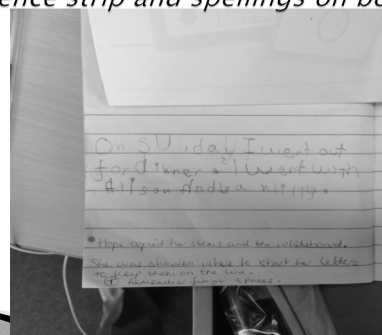 ence strip and spellings on bo
On SUnday I went out
for dinner. I went with
Allison And
Hope copied her stems and the whiteboard.
She was shown where to start her letters
to keep them on the line.
(T) Remember finger spaces.